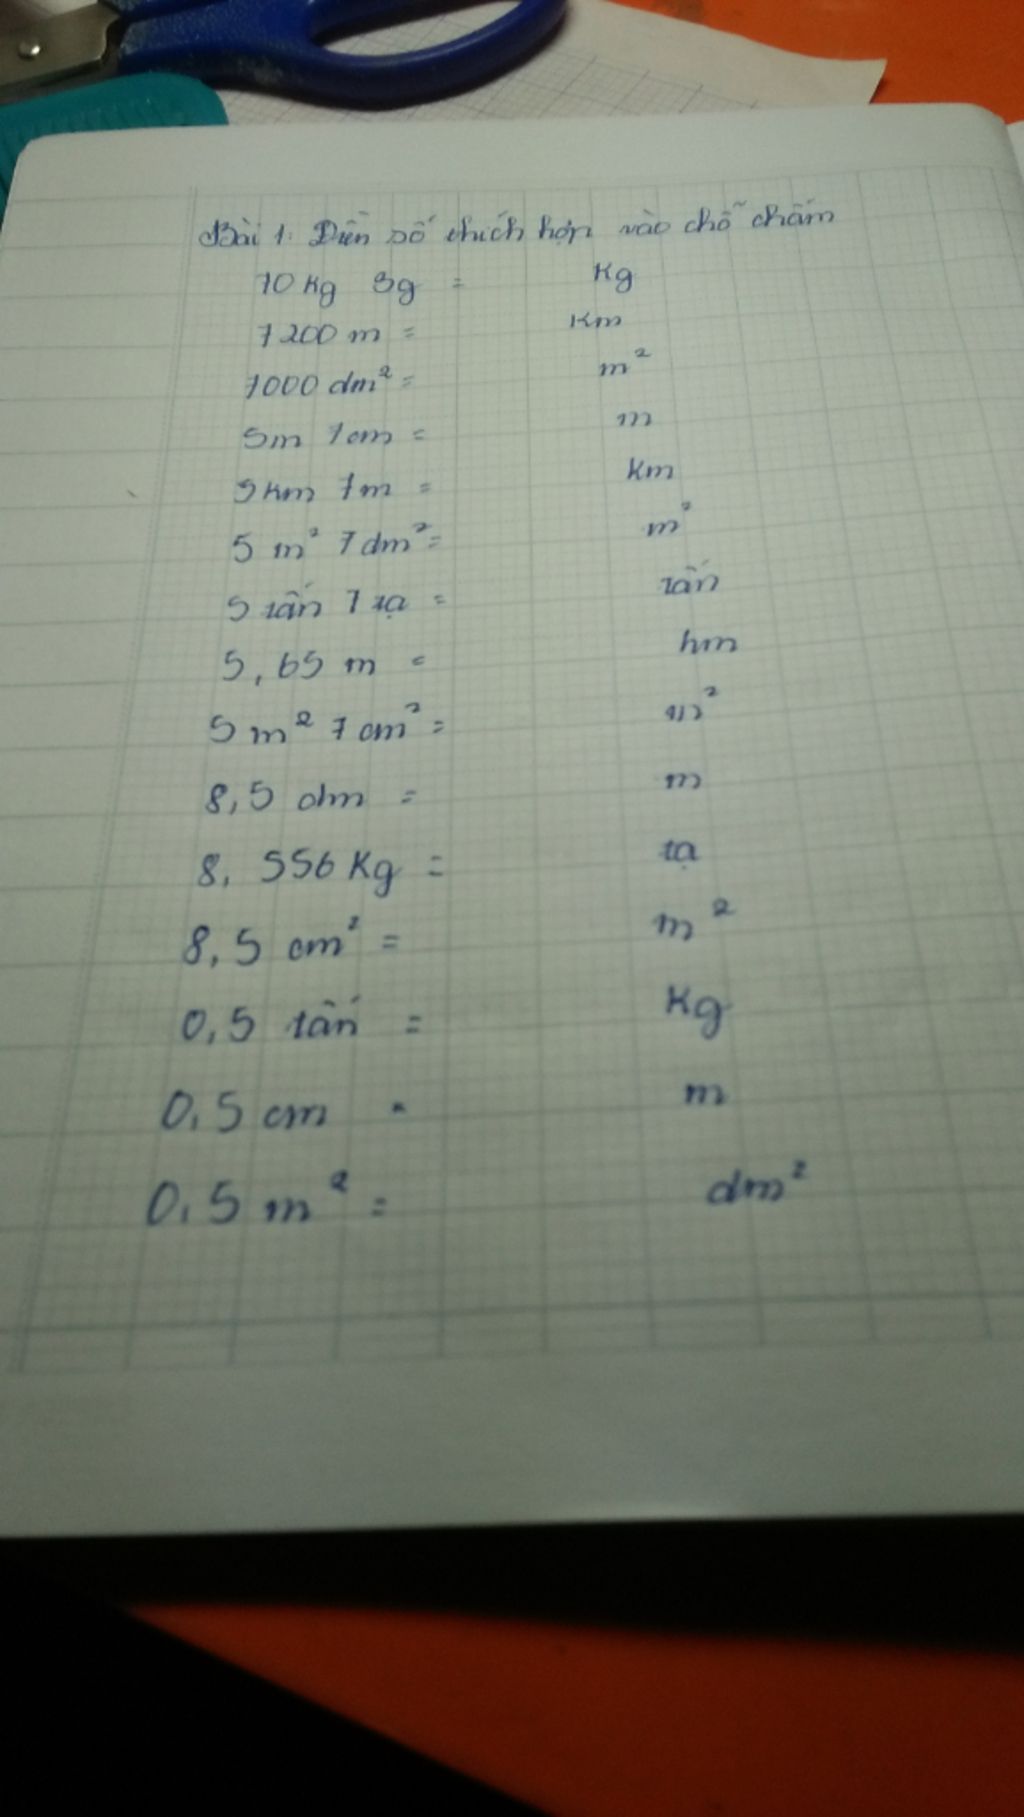 Bài 1: Điền số thích hợp vào chỗ chấm
10 kg 3g = kg
7200 m = km
1000 dm² = m²
5m 7cm = m
5km 7m = km
5 m² 7 dm² = m²
5 tấn 7 tạ = tấn
5,65 m = hm
5 m² 7 cm² = m²
8,5 dm = m
8,556 kg = tạ
8,5 cm² = m²
0,5 tấn = kg
0,5 cm = m
0,5 m² = dm²